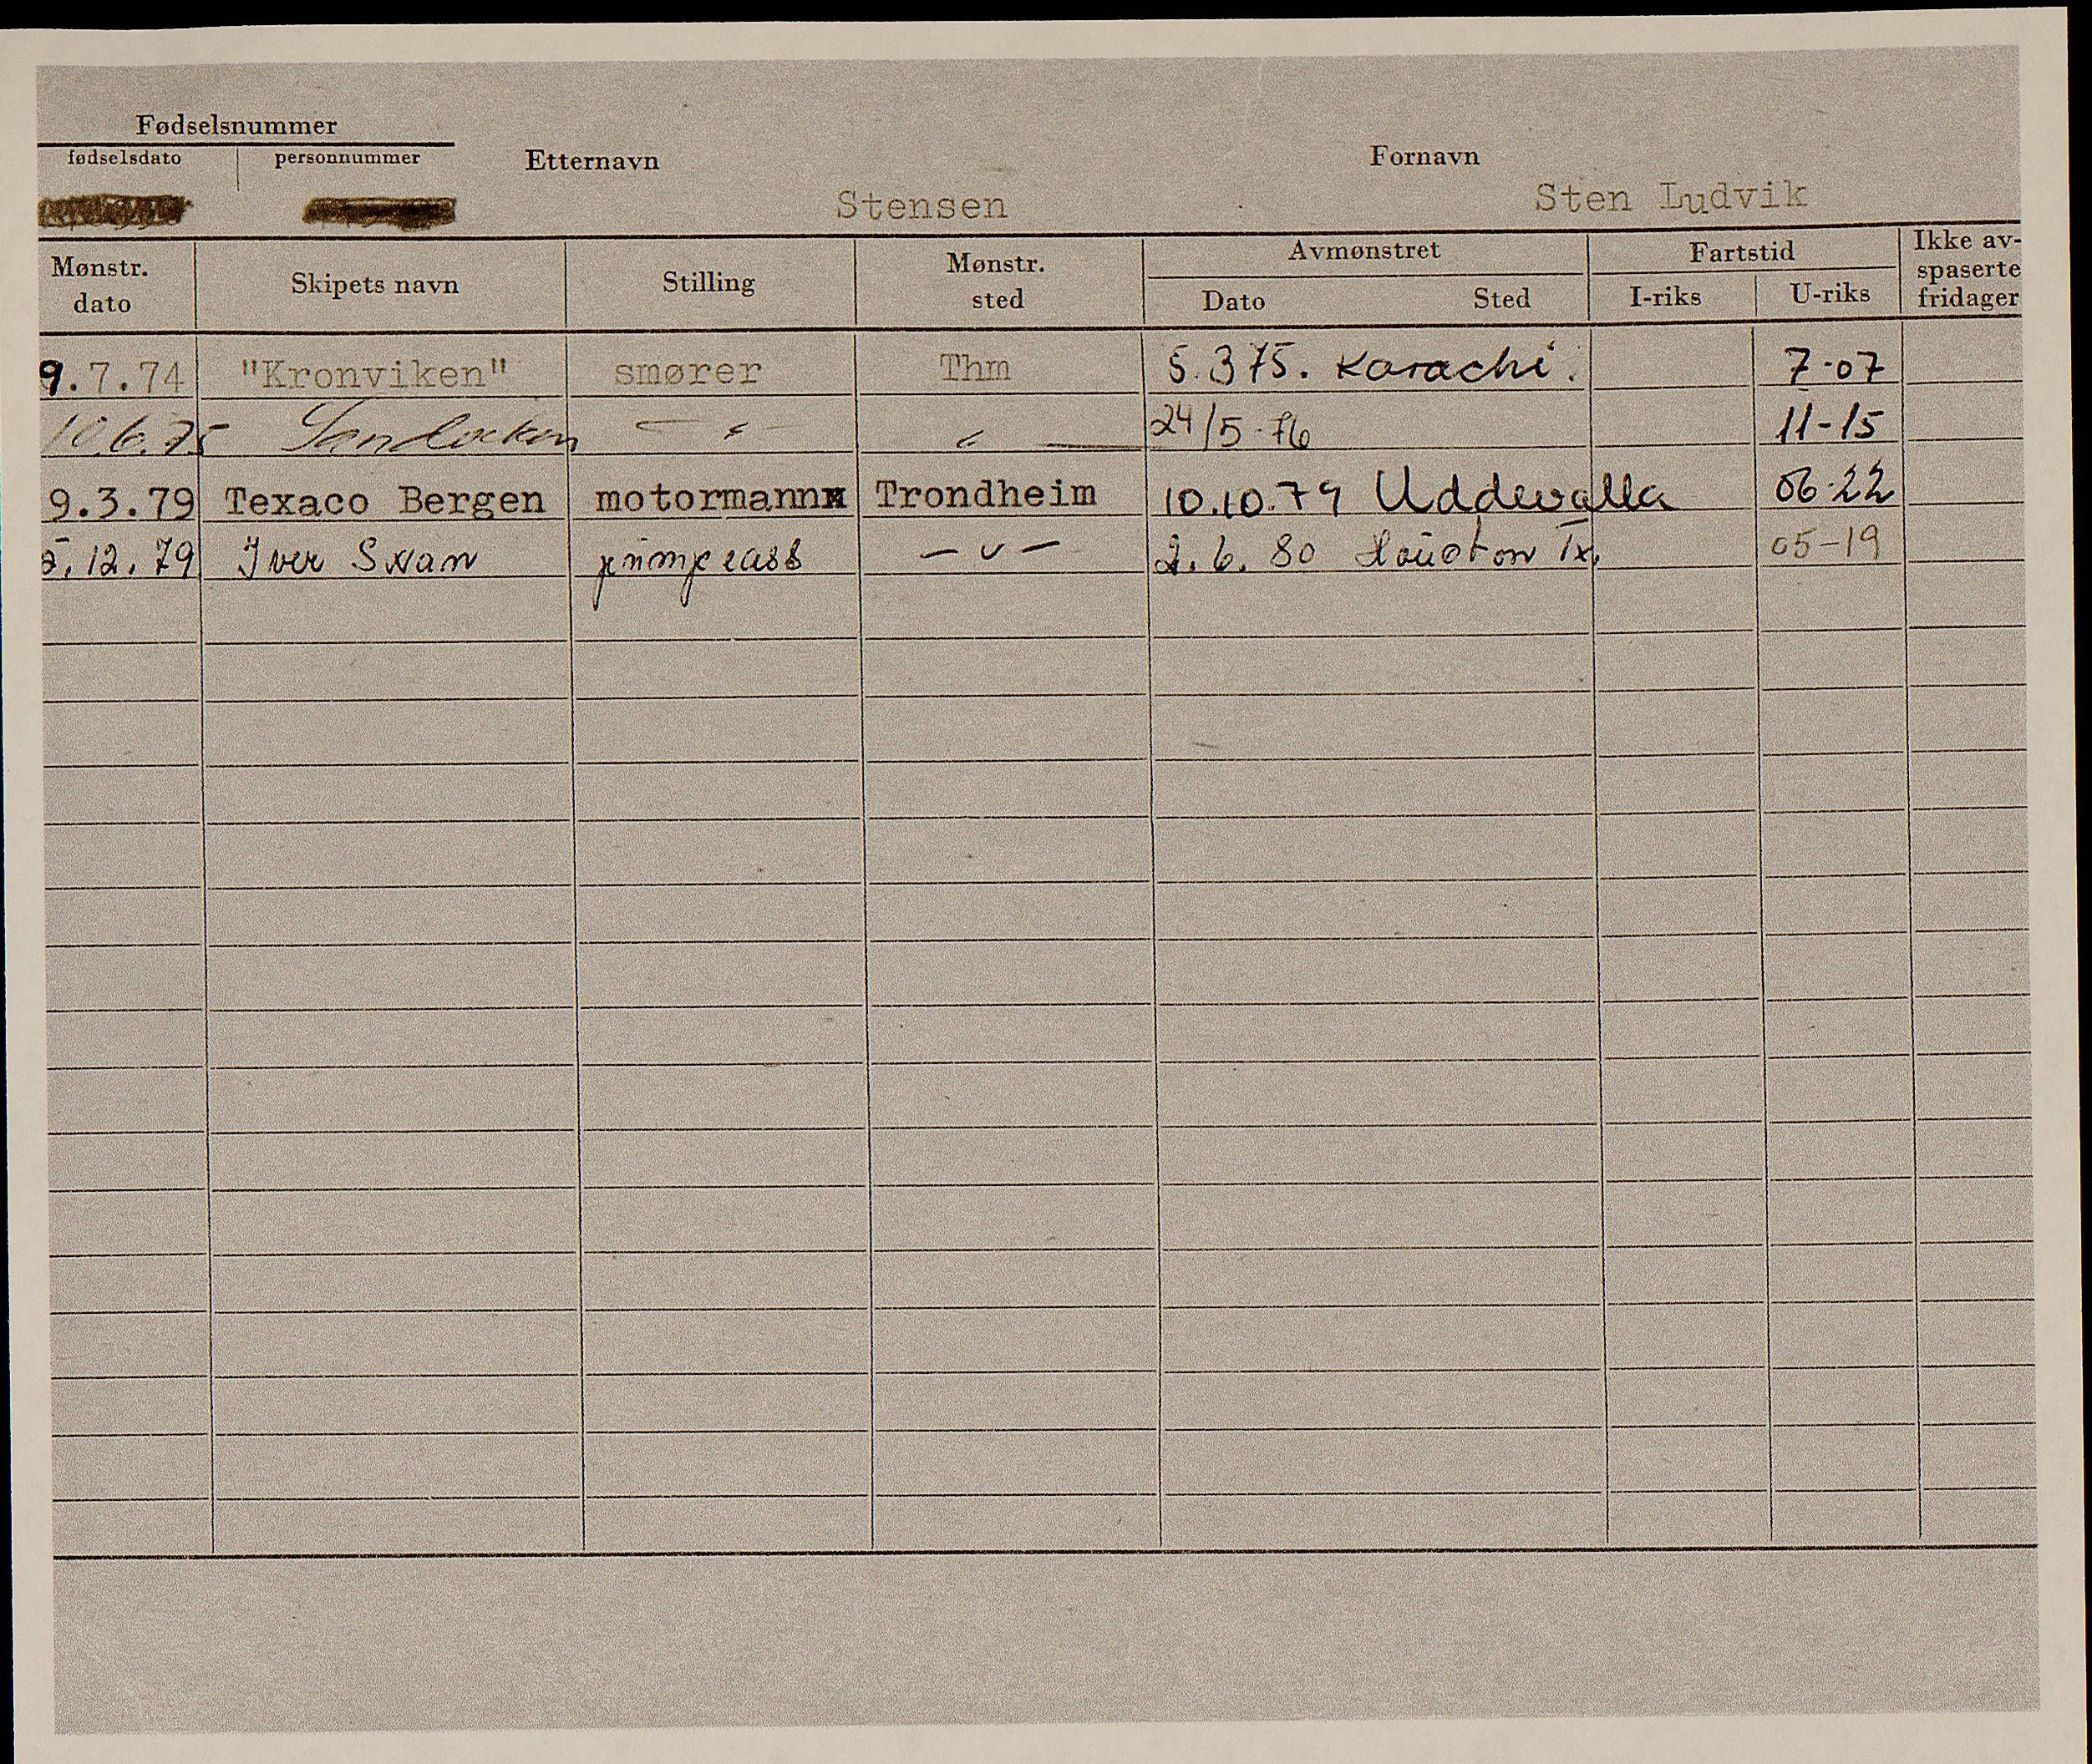 Fødselsnummer
fødselsdato personnummer Etternavn Fornavn
Stensen Sten Ludvik
Mønstr. dato Skipets navn Stilling Mønstr. sted Avmønstret Dato Sted Fartstid I-riks U-riks Ikke av-spaserte fridager
9.7.74 "Kronviken" smører Thm 5.3 75. Karachi. 7-07
10.6.75 — " — " 24/5-76 11-15
9.3.79 Texaco Bergen motormannx Trondheim 10.10.79 Uddevalla 06-22
5.12.79 Iver Swan — " — 2.6.80 Houston Tx. 05-19